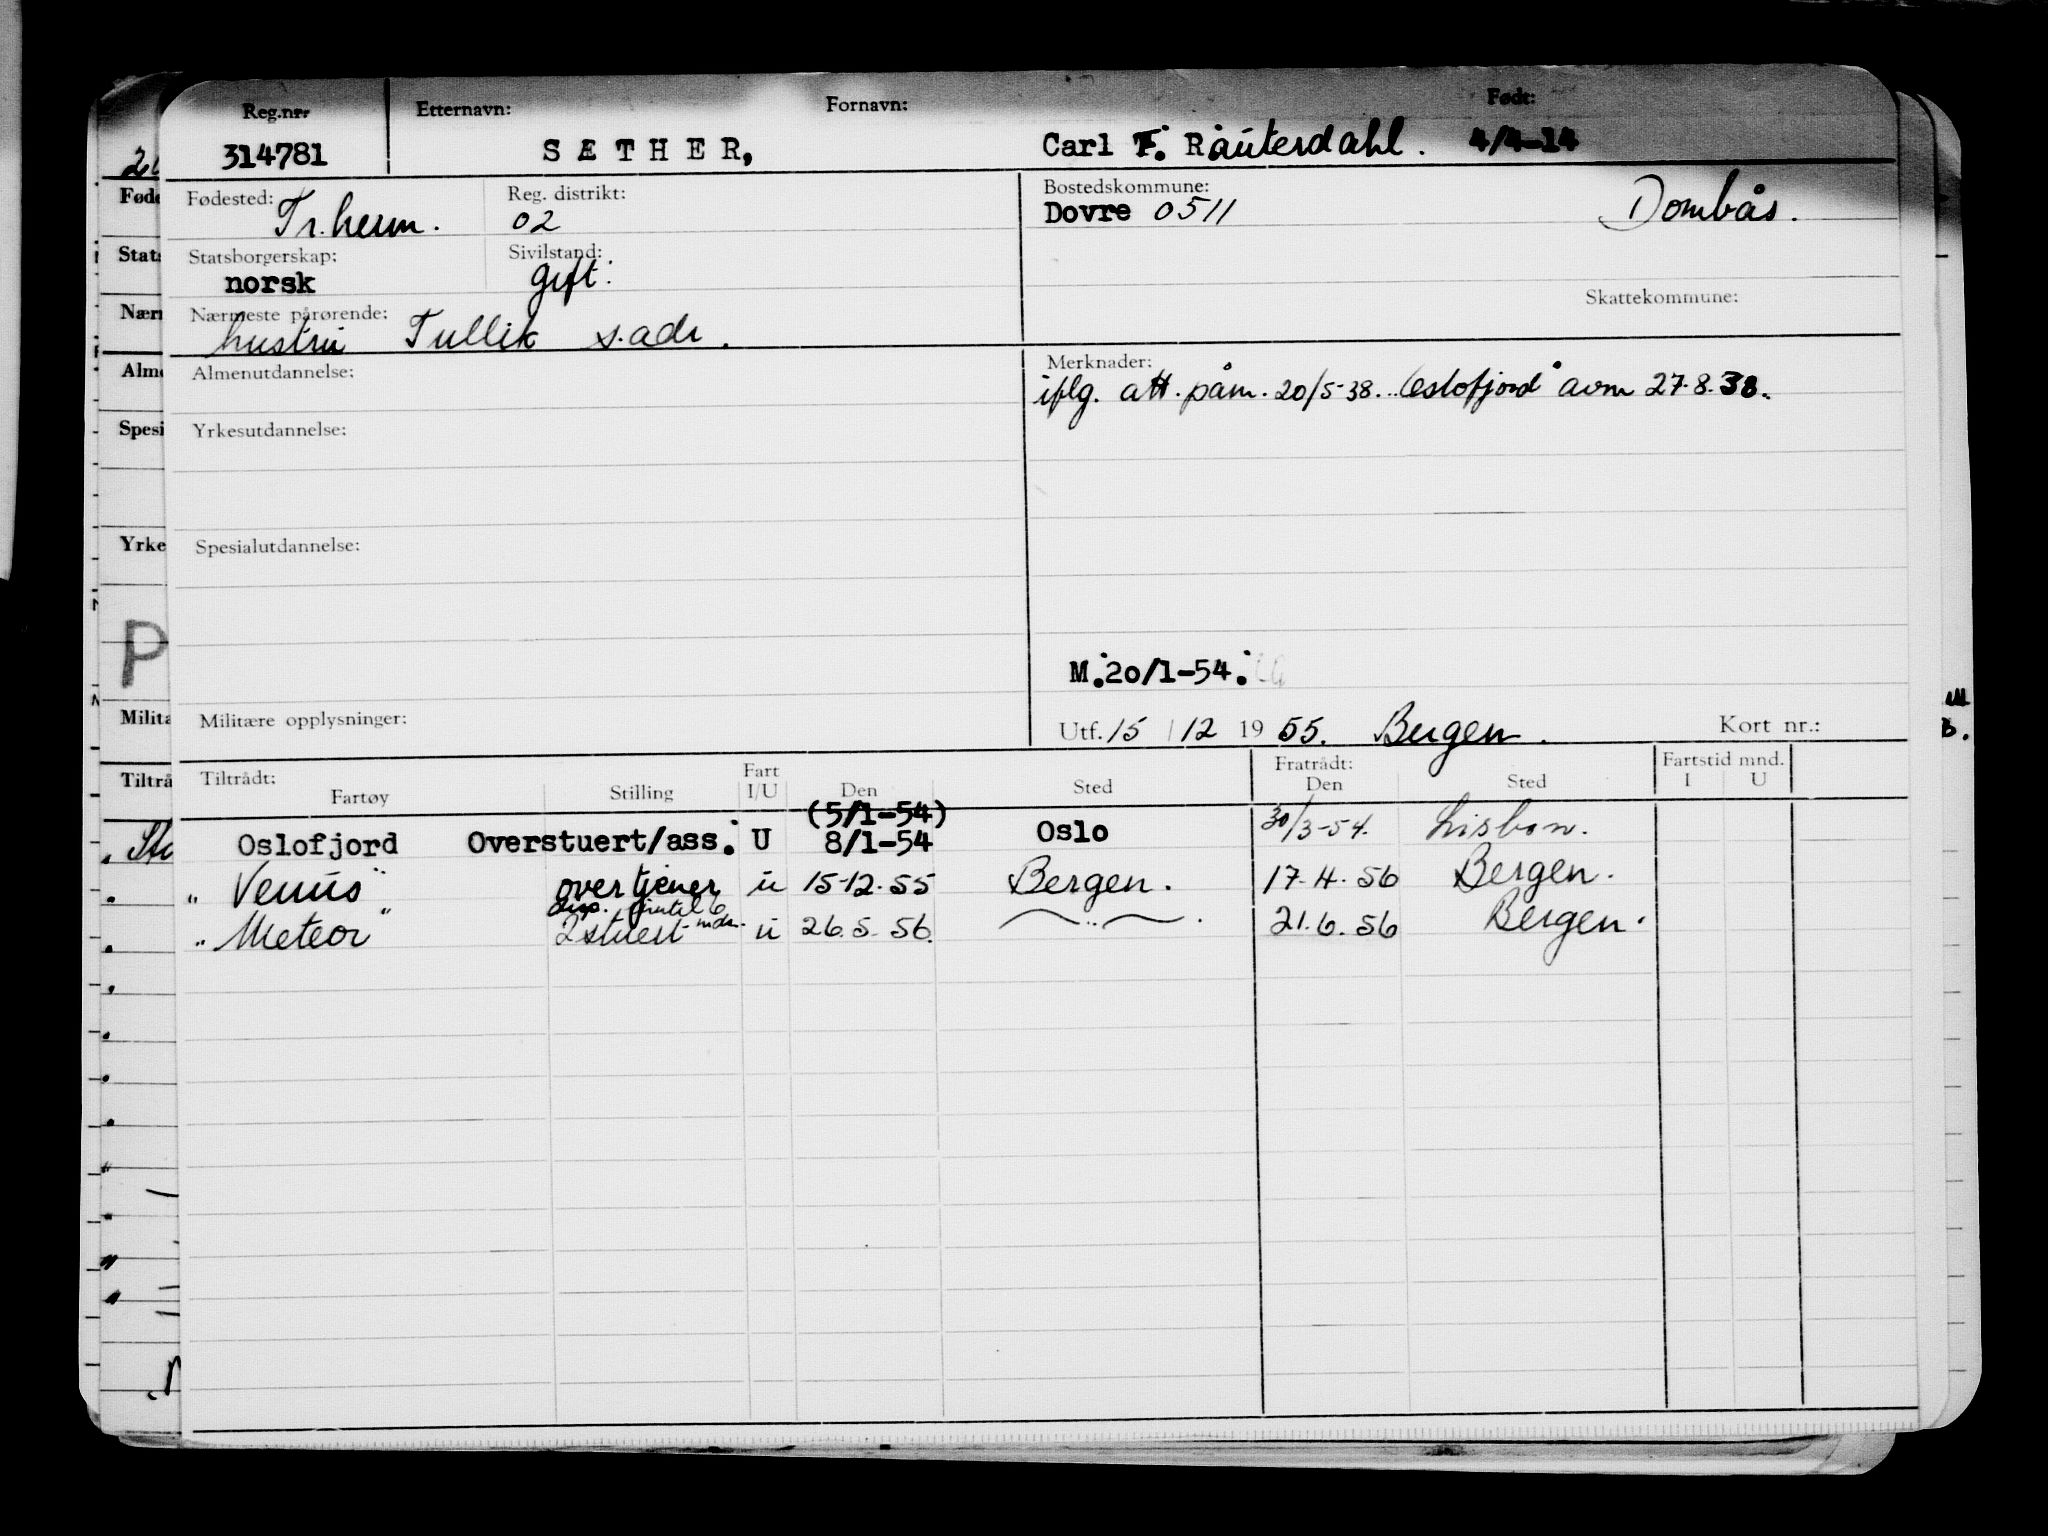 Reg.nr. Etternavn: Fornavn: Født:
314781 SÆTHER, Carl F. Rauterdahl. 4/4-14
Fødested: Reg. distrikt: Bostedskommune:
Tr.heim. 02 Dovre 0511 Dombås.
Statsborgerskap: Sivilstand:
norsk gift.
Nærmeste pårørende: Skattekommune:
hustru Tullik s.adr.
Almenutdannelse: Merknader:
iflg. att. påm. 20/5-38. "Oslofjord" avm 27.8.38.
Yrkesutdannelse:
Spesialutdannelse:
M.20/1-54.
Militære opplysninger: Utf. 15 / 12 19 55. Bergen. Kort nr.:
Tiltrådt: Fart Fratrådt: Fartstid mnd.
Fartøy Stilling I/U Den Sted Den Sted I U
(5/1-54)
Oslofjord Overstuert/ass. U 8/1-54 Oslo 30/3-54. Lisbon.
"Venus" overtjener u 15-12-55 Bergen. 17.4.56 Bergen.
disp. inntil 6 mdr.
"Meteor" 2 stuert u 26.5.56. 21.6.56 Bergen.
Føde
Stats
Nærm
Alme
Spesi
Yrke
P
Milita
Tiltrå